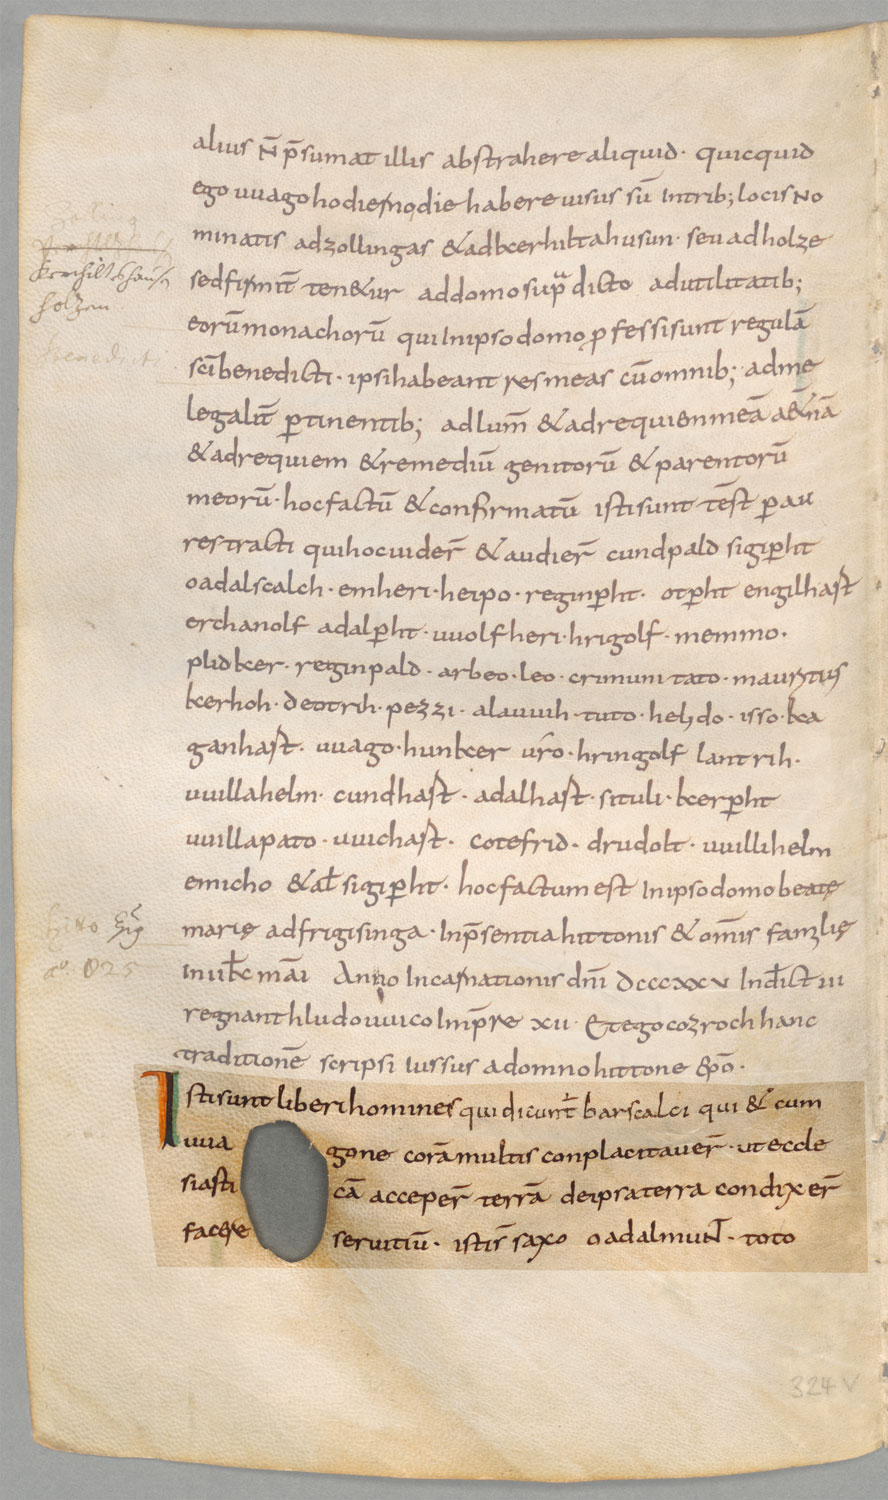 alius n̄ p̄sumat illis abstrahere aliquid· quicquid
ego uuago hodierno die habere uisus sū intrib; locis no
minatis adzollingas & ad kerhiltahusun· seu ad holze
sed firmit̄ ten&ur ad domo sup̄ dicto ad utilitatib;
eorū monachorū qui in ipso domo ꝓfessi sunt regulā
sc̄i benedicti· ipsi habeant res meas cū omnib; ad me
legalit̄ ꝑtinentib; ad lum̄ & ad requiem meā a&nā
& ad requiem & remediū genitorū & parentorū
meorū· hoc factū & confirmatū isti sunt tēst ꝑ au
res tracti qui hoc uider̄ & audier̄ cundpald sigiꝑht
oadalscalch· emheri· heipo· reginꝑht· otꝑht engilhast
erchanolf adalꝑht· uuolfheri· hrigolf· memmo·
plidker· reginpald· arbeo· leo· crimuni tato· maurytius
kerhoh· deotrih· pezzi· alauuih· tuto· heḥdo· isso· ka
ganhast· uuago· hunker uro· hringolf lantrih·
uuillahelm· cundhast· adalhast· situli· kerꝑht
uuillapato· uuichast· cotefrid· drudolt· uuillihelm
emicho & al̄ sigiꝑht· hoc factum est in ipso domo beatę
marię ad frigisinga· In p̄sentia hittonis & om̄is familię
In uiii k̄ mai Anno Incarnationis dn̄i dcccxxv Indict iii
regnant hludouuico Inp̄re xii· Et ego cozroch hanc
traditionē scripsi iussus a domno hittone ep̄o·
Isti sunt liberi homines qui dicunt̄ barscalci qui & cum
uua gone corā multis conplacitauer̄· ut eccle
siasti cā acceper̄ terrā de ipsa terra condixer̄
facere seruitiū· isti s̄ saxo oadalmunt· toto
Kerhiltshausn
holzen
benedicti
hitto ep̄s
frisig
aᵒ 825
324 v